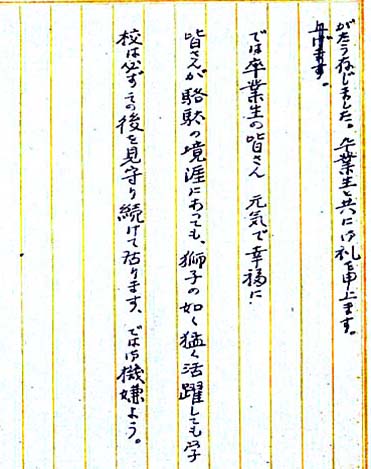 がたうねじました。卒業生と共に御礼申上ます。
上げます。
では卒業生の皆さん 元気で幸福に
皆さんが駱駄の境涯にあっても、獅子の如く猛く活躍しても学
校は必ずその後を見守り続けて居ります、では御機嫌よう。